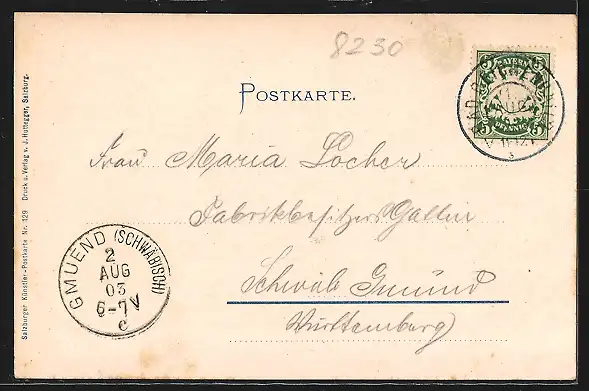 8230
BAYERN
5 5
PFENNIG
5 5
1 AUG
POSTKARTE.
Frau Maria Locher
Fabrikbesitzers Gattin
Schwäb Gmünd
Württemberg
GMUEND (SCHWÄBISCH)
2
AUG
03
6-7V
c
Salzburger Künstler-Postkarte Nr. 129 Druck u. Verlag v. J. Huttegger, Salzburg.